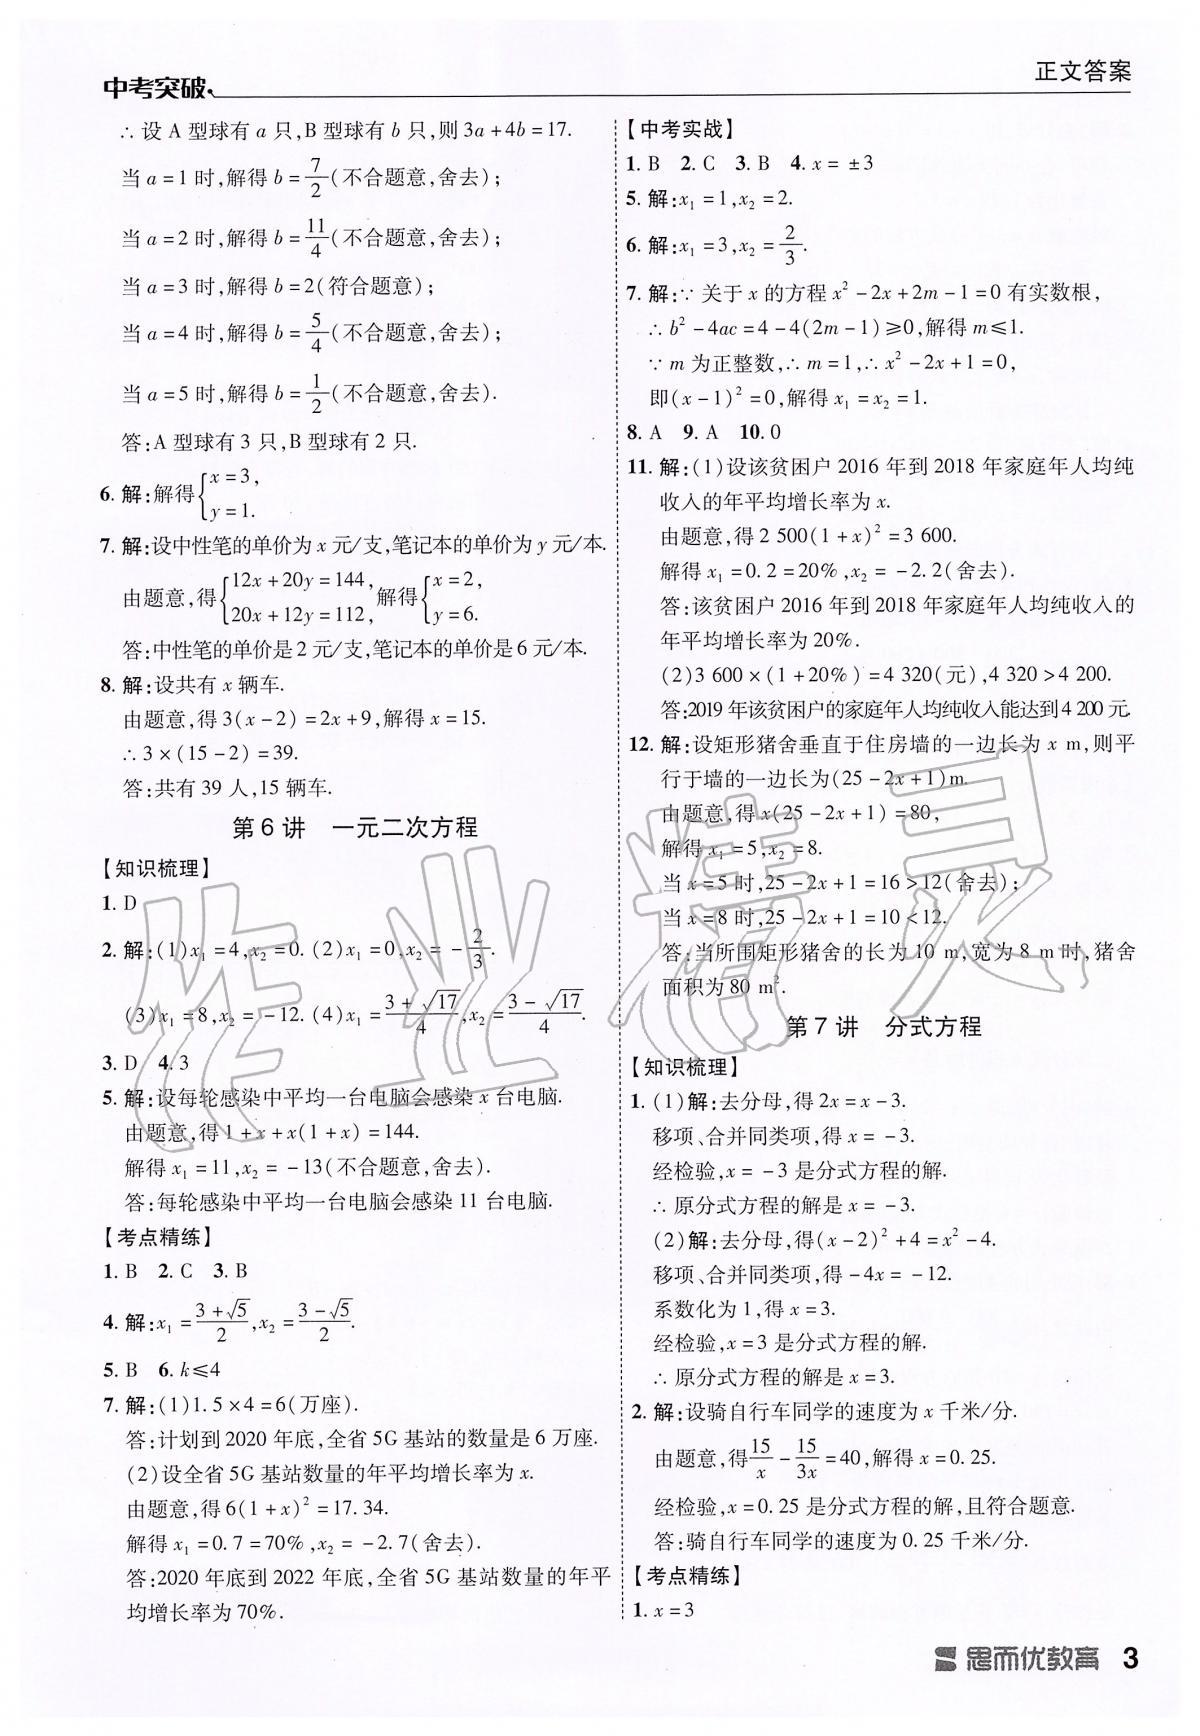 中考突破
正文答案
∴设A型球有a只,B型球有b只,则3a+4b=17.
当a=1时,解得b=7/2(不合题意,舍去);
当a=2时,解得b=11/4(不合题意,舍去);
当a=3时,解得b=2(符合题意);
当a=4时,解得b=5/4(不合题意,舍去);
当a=5时,解得b=1/2(不合题意,舍去).
答:A型球有3只,B型球有2只.
6. 解:解得{x=3, y=1.
7. 解:设中性笔的单价为x元/支,笔记本的单价为y元/本.
由题意,得{12x+20y=144, 20x+12y=112, 解得{x=2, y=6.
答:中性笔的单价是2元/支,笔记本的单价是6元/本.
8. 解:设共有x辆车.
由题意,得3(x-2)=2x+9,解得x=15.
∴3×(15-2)=39.
答:共有39人,15辆车.
第6讲 一元二次方程
【知识梳理】
1. D
2. 解:(1)x₁=4,x₂=0. (2)x₁=0,x₂=-2/3.
(3)x₁=8,x₂=-12. (4)x₁=(3+√17)/4,x₂=(3-√17)/4.
3. D 4. 3
5. 解:设每轮感染中平均一台电脑会感染x台电脑.
由题意,得1+x+x(1+x)=144.
解得x₁=11,x₂=-13(不合题意,舍去).
答:每轮感染中平均一台电脑会感染11台电脑.
【考点精练】
1. B 2. C 3. B
4. 解:x₁=(3+√5)/2,x₂=(3-√5)/2.
5. B 6. k≤4
7. 解:(1)1.5×4=6(万座).
答:计划到2020年底,全省5G基站的数量是6万座.
(2)设全省5G基站数量的年平均增长率为x.
由题意,得6(1+x)²=17.34.
解得x₁=0.7=70%,x₂=-2.7(舍去).
答:2020年底到2022年底,全省5G基站数量的年平
均增长率为70%.
【中考实战】
1. B 2. C 3. B 4. x=±3
5. 解:x₁=1,x₂=2.
6. 解:x₁=3,x₂=2/3.
7. 解:∵关于x的方程x²-2x+2m-1=0有实数根,
∴b²-4ac=4-4(2m-1)≥0,解得m≤1.
∵m为正整数,∴m=1,∴x²-2x+1=0,
即(x-1)²=0,解得x₁=x₂=1.
8. A 9. A 10. 0
11. 解:(1)设该贫困户2016年到2018年家庭年人均纯
收入的年平均增长率为x.
由题意,得2 500(1+x)²=3 600.
解得x₁=0.2=20%,x₂=-2.2(舍去).
答:该贫困户2016年到2018年家庭年人均纯收入的
年平均增长率为20%.
(2)3 600×(1+20%)=4 320(元),4 320>4 200.
答:2019年该贫困户的家庭年人均纯收入能达到4 200元.
12. 解:设矩形猪舍垂直于住房墙的一边长为x m,则平
行于墙的一边长为(25-2x+1)m.
由题意,得x(25-2x+1)=80,
解得x₁=5,x₂=8.
当x=5时,25-2x+1=16>12(舍去);
当x=8时,25-2x+1=10<12.
答:当所围矩形猪舍的长为10 m,宽为8 m时,猪舍
面积为80 m².
第7讲 分式方程
【知识梳理】
1. (1)解:去分母,得2x=x-3.
移项、合并同类项,得x=-3.
经检验,x=-3是分式方程的解.
∴原分式方程的解是x=-3.
(2)解:去分母,得(x-2)²+4=x²-4.
移项、合并同类项,得-4x=-12.
系数化为1,得x=3.
经检验,x=3是分式方程的解.
∴原分式方程的解是x=3.
2. 解:设骑自行车同学的速度为x千米/分.
由题意,得15/x-15/3x=40,解得x=0.25.
经检验,x=0.25是分式方程的解,且符合题意.
答:骑自行车同学的速度为0.25千米/分.
【考点精练】
1. x=3
作业精灵
思而优教育 3